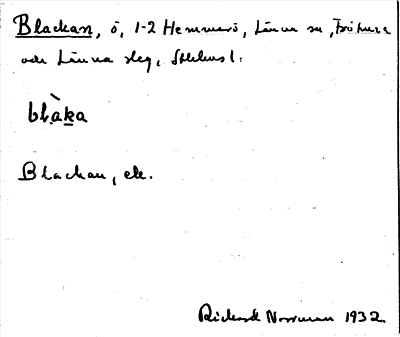 Blackan, ö, 1-2 Hemmarö, Länna sn, Fröhuza
och Länna slg, Sthlms l.
blàka
Blackan, ek.
Rickard Norrman 1932.